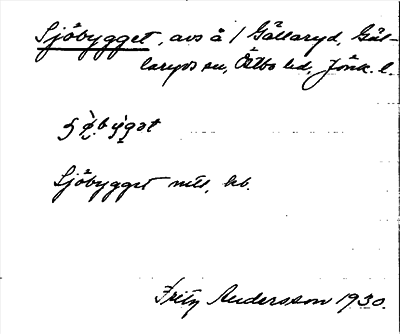 Sjöbygget, avs å 1 Gällaryd, Gäl-
laryds sn, Östbo hd, Jönk. l.
Sjöbygget mtl, kb.
Fritz Andersson 1930.